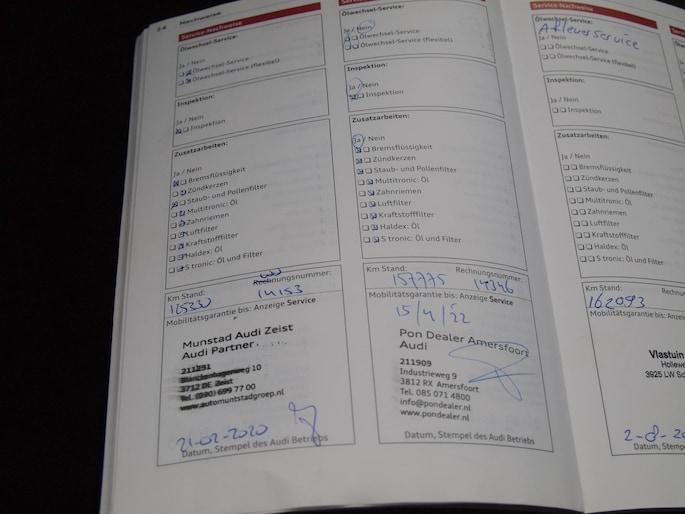 34 Nachweise
Service-Nachweise
Ölwechsel-Service:
Ja / Nein
Ölwechsel-Service
Ölwechsel-Service (flexibel)
Inspektion:
Ja / Nein
Inspektion
Zusatzarbeiten:
Ja / Nein
Bremsflüssigkeit
Zündkerzen
Staub- und Pollenfilter
Multitronic: Öl
Zahnriemen
Luftfilter
Kraftstofffilter
Haldex: Öl
S tronic: Öl und Filter
Km Stand: Rechnungsnummer:
14153
Mobilitätsgarantie bis: Anzeige Service
Munstad Audi Zeist
Audi Partner
3712 DE Zeist
Tel. (030) 699 77 00
www.automuntstadgroep.nl
21-02-2020
Datum, Stempel des Audi Betriebs
Ölwechsel-Service:
Ja / Nein
Ölwechsel-Service
Ölwechsel-Service (flexibel)
Inspektion:
Ja / Nein
Inspektion
Zusatzarbeiten:
Ja / Nein
Bremsflüssigkeit
Zündkerzen
Staub- und Pollenfilter
Multitronic: Öl
Zahnriemen
Luftfilter
Kraftstofffilter
Haldex: Öl
S tronic: Öl und Filter
Km Stand: Rechnungsnummer:
157775 14346
Mobilitätsgarantie bis: Anzeige Service
15/4/22
Pon Dealer Amersfoort
Audi
211909
Industrieweg 9
3812 RX Amersfoort
Tel. 085 071 4800
info@pondealer.nl
www.pondealer.nl
Datum, Stempel des Audi Betriebs
Service-Nachweise
Ölwechsel-Service:
Afleverservice
Ölwechsel-Service
Ölwechsel-Service (flexibel)
Inspektion:
Ja / Nein
Inspektion
Zusatzarbeiten:
Ja / Nein
Bremsflüssigkeit
Zündkerzen
Staub- und Pollenfilter
Multitronic: Öl
Zahnriemen
Luftfilter
Kraftstofffilter
Haldex: Öl
S tronic: Öl und Filter
Km Stand:
162093
Mobilitätsgarantie bis: Anz
Vlastuin
3925 LW
Datum,